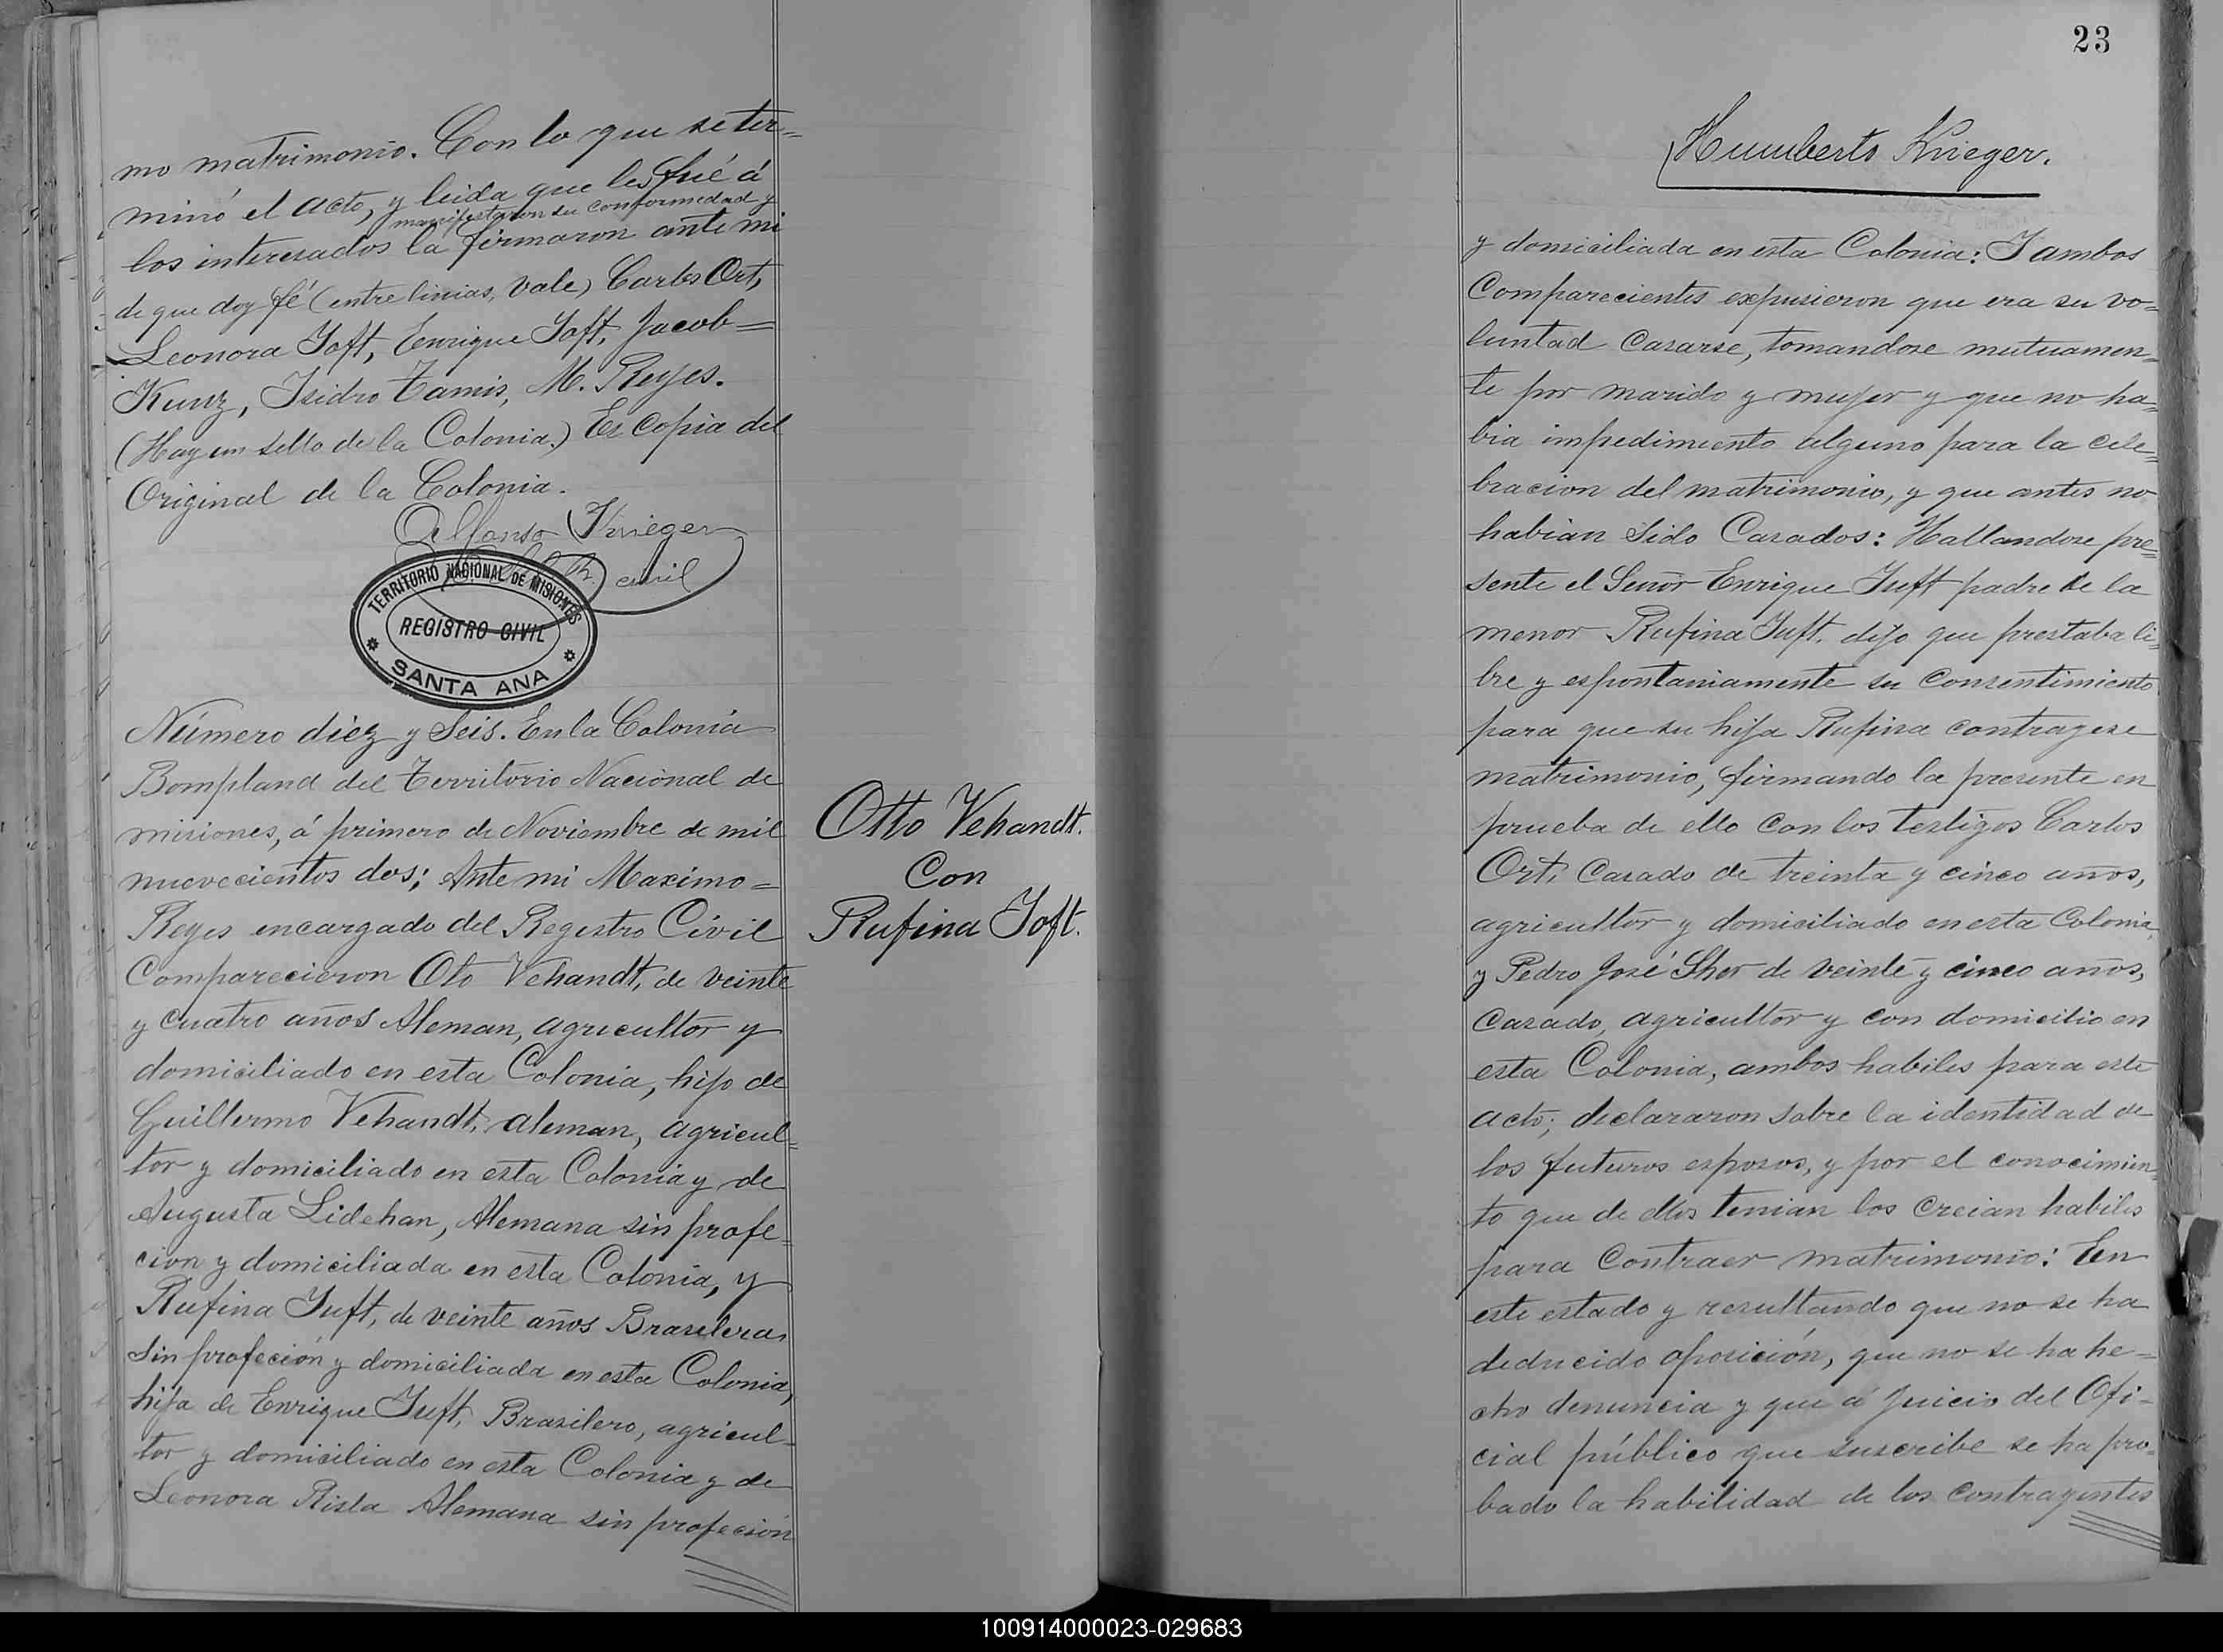 mo matrimonio. Con lo que se ter=
minó el acto, y leida que les fué á
manifestaron su conformedad y
los interesados la firmaron ante mi
de que doy fé (entre linias, vale) Carlos Ort,
Leonora Joft, Enrique Joft, Jacob=
Kunz, Isidro Tamis, M. Reyes.
(Hay un sello de la Colonia.) Es Copia del
Original de la Colonia.
Alfonso Krieger
civil
TERRITORIO NACIONAL DE MISIONES
REGISTRO CIVIL
SANTA ANA
Número diez y Seis. En la Colonia
Bompland del Territorio Nacional de
misiones, á primero de Noviembre de mil
nuevecientos dos; Ante mi Maximo=
Reyes encargado del Registro Civil
Comparecieron Oto Vehandt, de veinte
y cuatro años Aleman, agricultor y
domiciliado en esta Colonia, hijo de
Guillermo Vehandt, aleman, agricul=
tor y domiciliado en esta Colonia y de
Augusta Lidehan, Alemana sin profe=
cion y domiciliada en esta Colonia, y
Rufina Juft, de veinte años Brasilera,
sin profeción y domiciliada en esta Colonia,
hija de Enrique Juft, Brazilero, agricul-
tor y domiciliado en esta Colonia y de
Leonora Rista Alemana sin profeción
Otto Vehandt.
Con
Rufina Joft.
23
Humberto Krieger.
y domiciliada en esta Colonia: I ambos
Comparecientes expusieron que era su vo=
luntad Casarse, tomandose mutuamen=
te por marido y mujer y que no ha=
bia impedimiento alguno para la cele=
bracion del matrimonio, y que antes no
habian Sido Casados: Hallandose pre=
sente el Senõr Enrique Juft padre de la
menor Rufina Juft, dijo que prestaba li=
bre y espontaniamente su Consentimiento
para que su hija Rufina contragese
matrimonio, firmando la presente en
prueba de ello con los testigos Carlos
Ort, Casado de treinta y cinco años,
agricultor y domiciliado en esta Colonia,
y Pedro José Shor de veinte y cinco años,
Casado, agricultor y con domicilio en
esta Colonia, ambos habiles para este
acto; declararon sobre la identidad de
los futuros esposos, y por el conocimien=
to que de ellos tenian los creian habiles
para Contraer matrimonio: En
este estado y resultando que no se ha
deducido oposición, que no se ha he=
cho denuncia y que á juicio del Ofi-
cial público que suscribe se ha pro=
bado la habilidad de los contrayentes
100914000023-029683